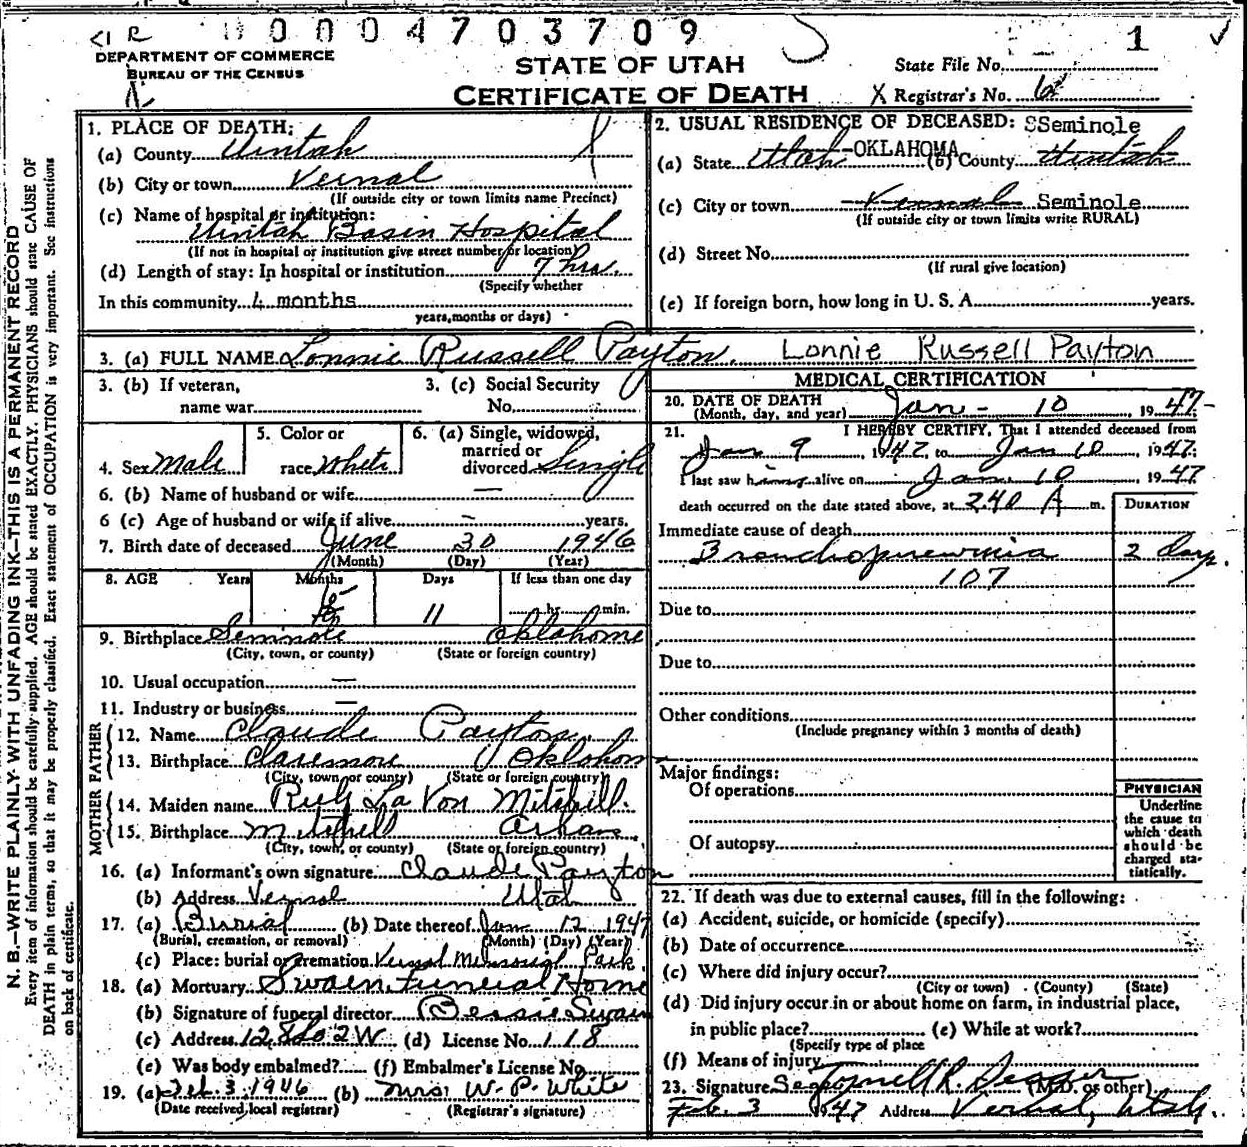 0 0 0 4 7 0 3 7 0 9
1
DEPARTMENT OF COMMERCE
BUREAU OF THE CENSUS
STATE OF UTAH
CERTIFICATE OF DEATH
State File No.
X Registrar's No. 6
N. B.—WRITE PLAINLY WITH UNFADING INK—THIS IS A PERMANENT RECORD
Every item of information should be carefully supplied. AGE should be stated EXACTLY. PHYSICIANS should state CAUSE OF
DEATH in plain terms, so that it may be properly classified. Exact statement of OCCUPATION is very important. See instructions
on back of certificate.
1. PLACE OF DEATH:
(a) County Uintah
(b) City or town Vernal
(If outside city or town limits name Precinct)
(c) Name of hospital or institution:
Uintah Basin Hospital
(If not in hospital or institution give street number or location)
(d) Length of stay: In hospital or institution 7 hrs.
(Specify whether
In this community 4 months
years, months or days)
2. USUAL RESIDENCE OF DECEASED: SSeminole
(a) State Utah OKLAHOMA (b) County Uintah
(c) City or town Vernal Seminole
(If outside city or town limits write RURAL)
(d) Street No.
(If rural give location)
(e) If foreign born, how long in U. S. A. years.
3. (a) FULL NAME Lonnie Russell Payton. Lonnie Russell Payton
3. (b) If veteran,
name war
3. (c) Social Security
No.
4. Sex Male
5. Color or
race White
6. (a) Single, widowed,
married or
divorced Single
6. (b) Name of husband or wife —
6 (c) Age of husband or wife if alive — years.
7. Birth date of deceased June 30 1946
(Month) (Day) (Year)
8. AGE Years Months Days If less than one day
11 hr. min.
9. Birthplace Seminole Oklahoma
(City, town, or county) (State or foreign country)
10. Usual occupation —
11. Industry or business —
FATHER
12. Name Claude Payton
13. Birthplace Claremore Oklahom
(City, town or county) (State or foreign country)
MOTHER
14. Maiden name Ruby La Von Mitchell.
15. Birthplace Mitchell Arkans.
(City, town, or county) (State or foreign country)
16. (a) Informant's own signature Claude Payton
(b) Address Vernal Utah
17. (a) Burial (b) Date thereof Jan 12 1947
(Burial, cremation, or removal) (Month) (Day) (Year)
(c) Place: burial or cremation Vernal Memorial Park
18. (a) Mortuary Swain Funeral Home
(b) Signature of funeral director Bessie Swain
(c) Address 2 W (d) License No. 118
(e) Was body embalmed? (f) Embalmer's License No.
19. (a) Feb. 3, 1946 (b) Mrs. W. P. White
(Date received local registrar) (Registrar's signature)
MEDICAL CERTIFICATION
20. DATE OF DEATH
(Month, day, and year) Jan - 10, 1947-
21. I HEREBY CERTIFY, That I attended deceased from
Jan 9, 1947, to Jan 10, 1947;
I last saw him alive on Jan 10, 1947
death occurred on the date stated above, at 240 A m.
DURATION
Immediate cause of death
Bronchopneumonia 2 days.
107
Due to
Due to
Other conditions
(Include pregnancy within 3 months of death)
Major findings:
Of operations
Of autopsy
PHYSICIAN
Underline
the cause to
which death
should be
charged sta-
tistically.
22. If death was due to external causes, fill in the following:
(a) Accident, suicide, or homicide (specify)
(b) Date of occurrence
(c) Where did injury occur?
(City or town) (County) (State)
(d) Did injury occur in or about home on farm, in industrial place,
in public place? (e) While at work?
(Specify type of place
(f) Means of injury
23. Signature (M.D. or other)
Feb. 3 1947 Address Vernal, Utah.